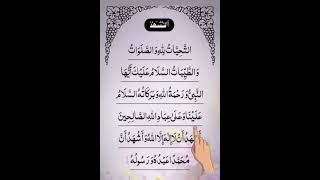 التشهد
التَّحِيَّاتُ لِلّٰهِ وَالصَّلَوَاتُ
وَالطَّيِّبَاتُ السَّلَامُ عَلَيْكَ أَيُّهَا
النَّبِيُّ وَرَحْمَةُ اللّٰهِ وَبَرَكَاتُهُ السَّلَامُ
عَلَيْنَا وَعَلٰى عِبَادِ اللّٰهِ الصَّالِحِينَ
أَشْهَدُ أَنْ لَا إِلٰهَ إِلَّا اللّٰهُ وَأَشْهَدُ أَنَّ
مُحَمَّدًا عَبْدُهُ وَرَسُولُهُ